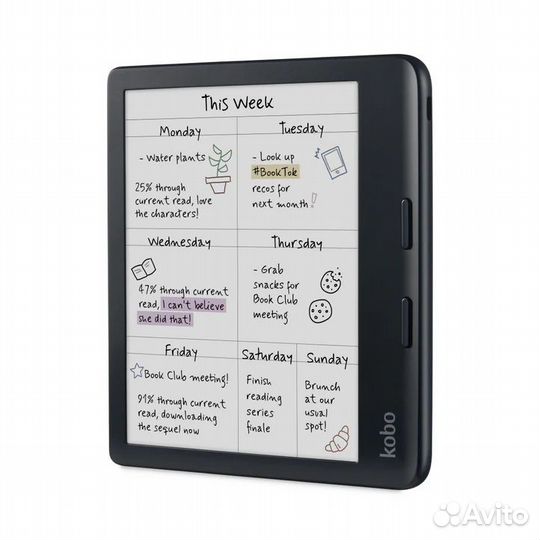 This Week
Monday
- Water plants
25% through
current read, love
the characters!
Tuesday
- Look up
#BookTok
recos for
next month!
Wednesday
47% through current
read, I can't believe
she did that!
Thursday
- Grab
snacks for
Book Club
meeting
Friday
Book Club meeting!
91% through current
read, downloading
the sequel now
Saturday
Finish
reading
series
finale
Sunday
Brunch
at our
usual
spot!
kobo
Avito